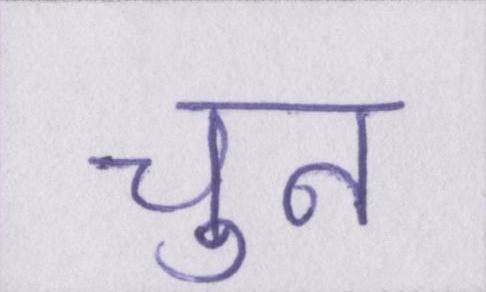 चुन